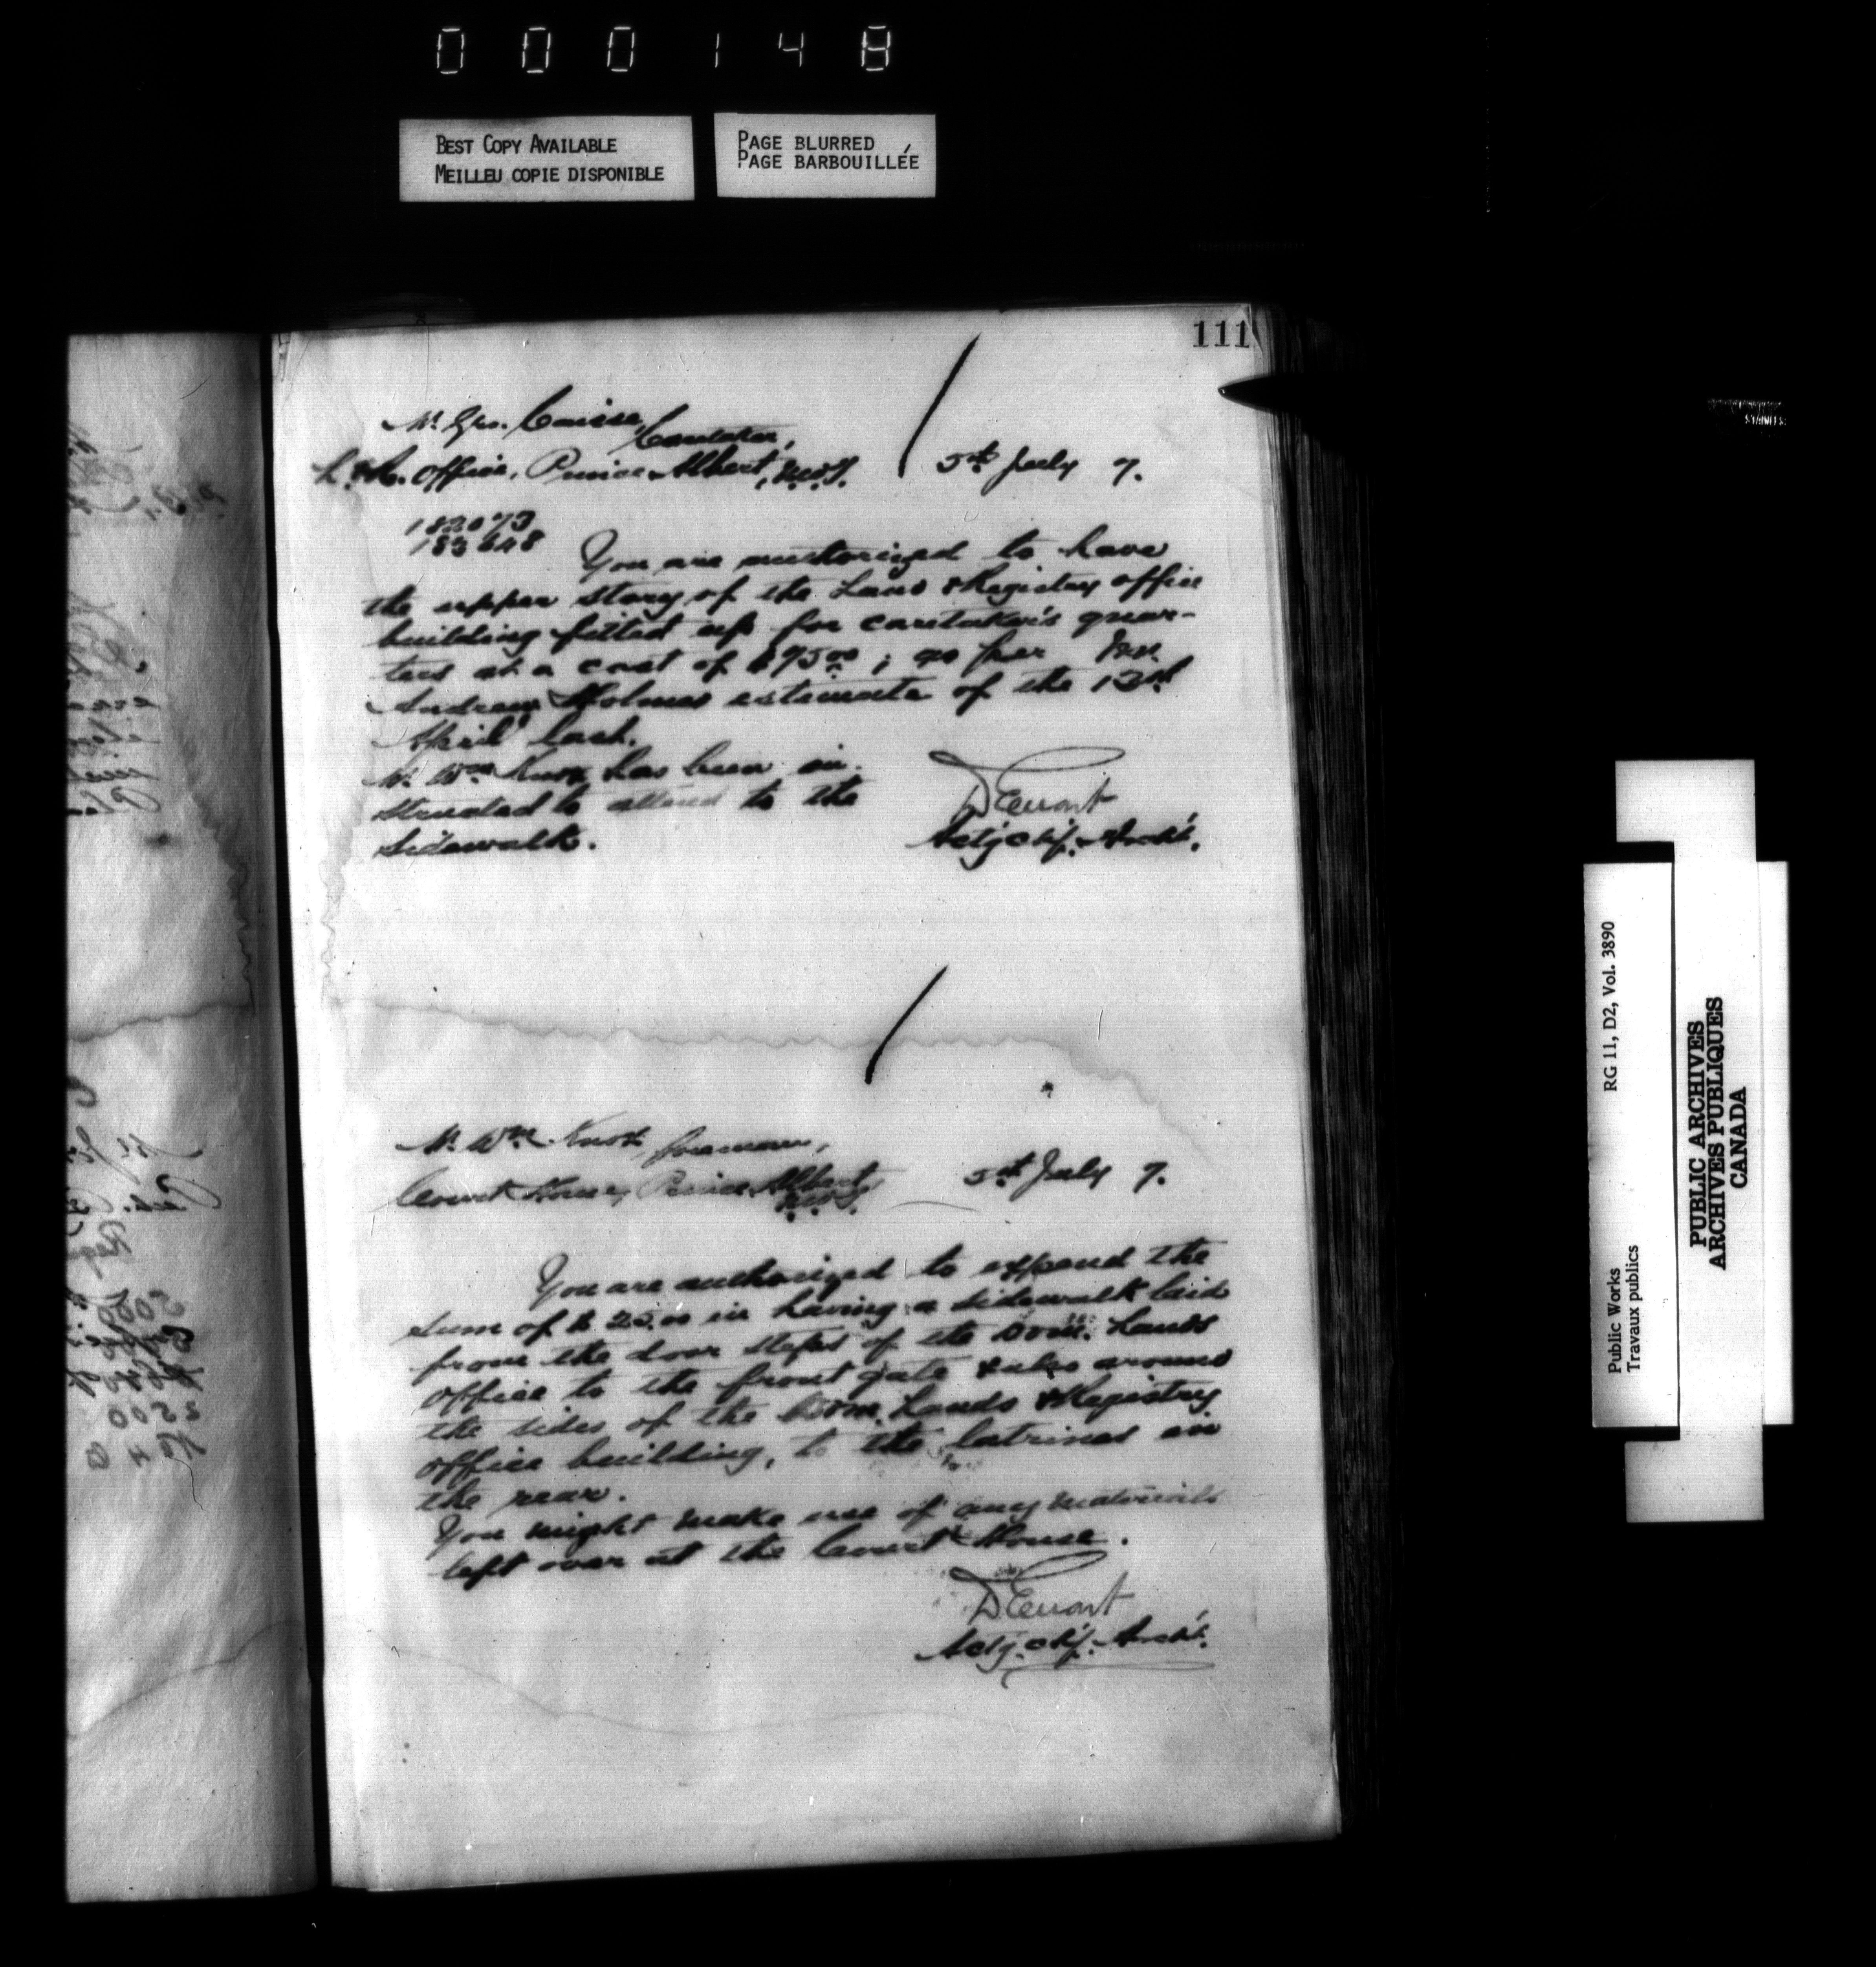 000148
BEST COPY AVAILABLE
MEILLEU COPIE DISPONIBLE
PAGE BLURRED
PAGE BARBOUILLÉE
111
Mr. Geo. Caretaker,
L. & R. Office, Prince Albert, N.W.T. 5th July 7.
182073
183648
You are authorized to have
the upper story of the Land & Registry office
building fitted up for caretaker's quar-
ters at a cost of $75.00; as per Mr.
Andrew Holmes estimate of the 13th
April last.
Mr. Wm Knox has been in-
structed to attend to the
sidewalk.
D Ewart
Actg. Chf. Archt.
Mr. Wm Knox, foreman,
Court House, Prince Albert, N.W.T. 5th July 7.
You are authorized to expend the
sum of $ 25.00 in having a sidewalk laid
from the door steps of the Dom. Lands
office to the front gate & also around
the sides of the Dom. Lands & Registry
office building, to the latrines in
the rear.
You might make use of any materials
left over at the Court House.
D Ewart
Actg. Chf. Archt.
Public Works RG 11, D2, Vol. 3890
Travaux publics
PUBLIC ARCHIVES
ARCHIVES PUBLIQUES
CANADA